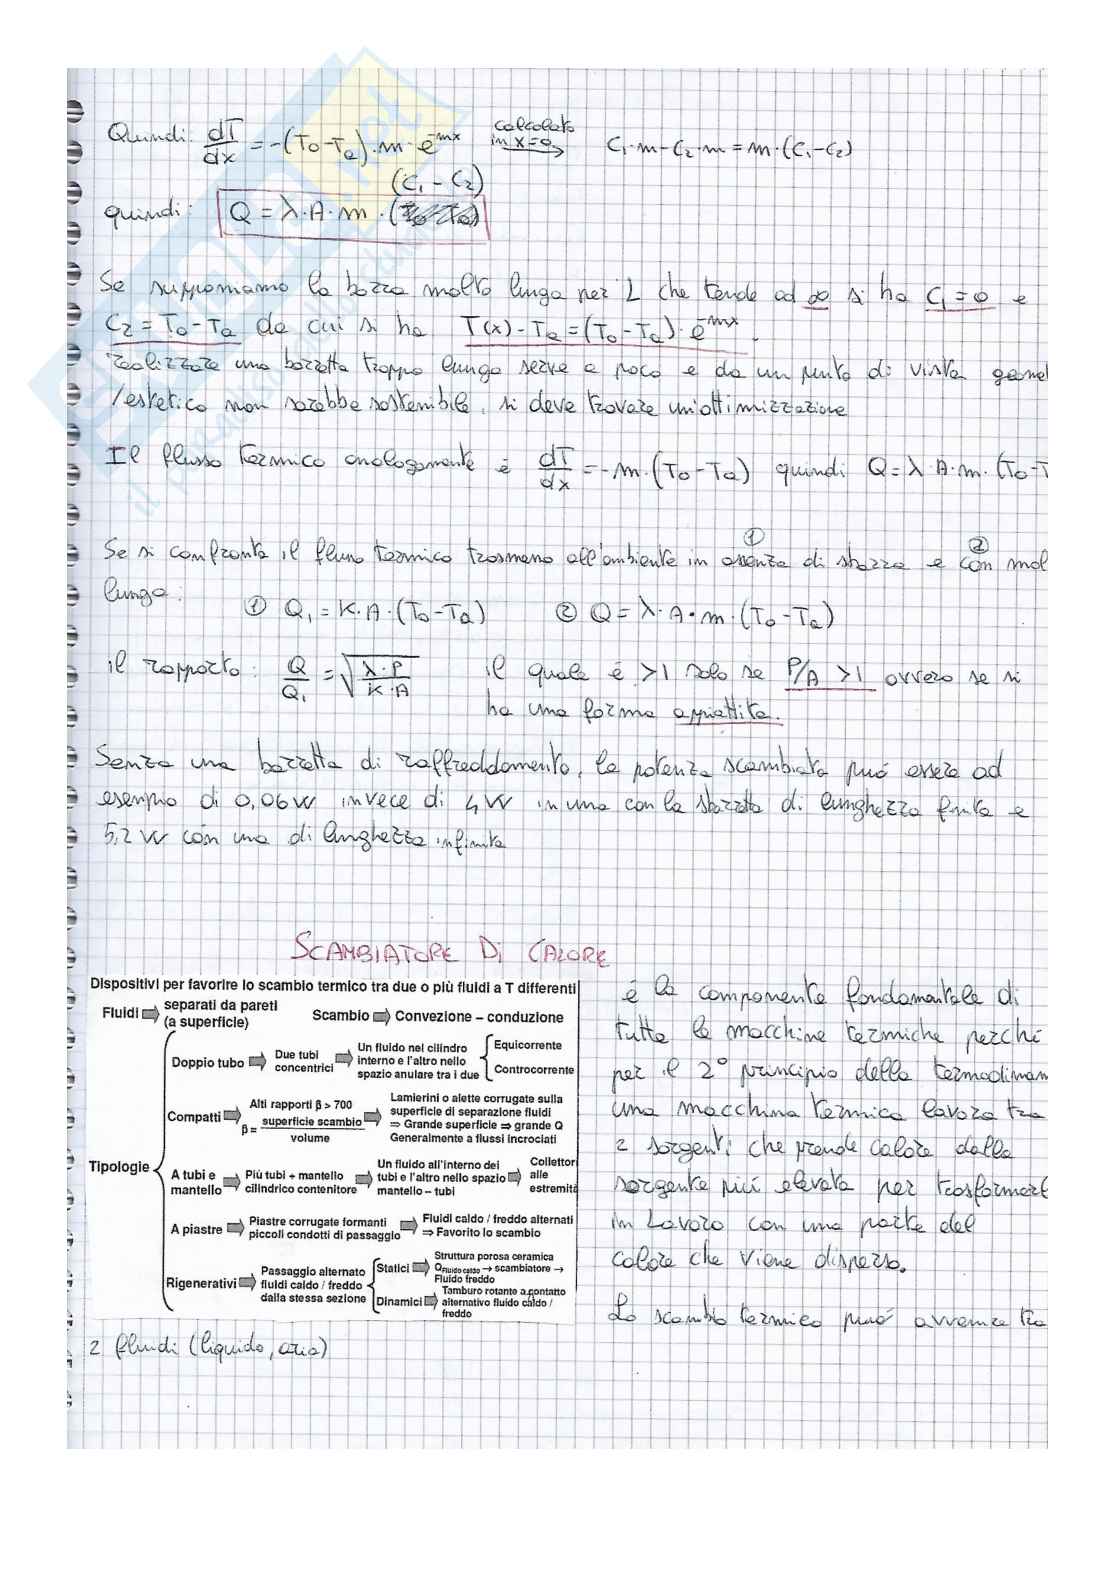 Quindi: dT/dx = -(To-Ta)·m·e^-mx calcolato in x=0 → C1·m-C2·m = m·(C1-C2)
(C1-C2)
quindi: Q = λ·A·m·
Se supponiamo la barra molto lunga per L che tende ad ∞ si ha C1=0 e
C2=To-Ta da cui si ha T(x)-Ta=(To-Ta)·e^-mx.
realizzare una barretta troppo lunga serve a poco e da un punto di vista geomet
/estetico non sarebbe sostenibile, si deve trovare un'ottimizzazione
Il flusso termico analogamente è dT/dx = -m·(To-Ta) quindi Q=λ·A·m·(To-T
① ②
Se si confronta il flusso termico trasmesso all'ambiente in assenza di sbarra e con mol
lunga: ① Q1 = K·A·(To-Ta) ② Q = λ·A·m·(To-Ta)
il rapporto: Q/Q1 = √(λ·P/K·A) il quale è >1 solo se P/A >1 ovvero se si
ha una forma appiattita.
Senza una barretta di raffreddamento, la potenza scambiata può essere ad
esempio di 0,06W invece di 4W in una con la sbarretta di lunghezza finita e
5,2W con una di lunghezza infinita
SCAMBIATORE DI CALORE
Dispositivi per favorire lo scambio termico tra due o più fluidi a T differenti
Fluidi ⇒ separati da pareti (a superficie)
Scambio ⇒ Convezione – conduzione
Tipologie
Doppio tubo ⇒ Due tubi concentrici ⇒ Un fluido nel cilindro interno e l'altro nello spazio anulare tra i due
Equicorrente
Controcorrente
Compatti ⇒ Alti rapporti β > 700
β = superficie scambio / volume
⇒ Lamierini o alette corrugate sulla
superficie di separazione fluidi
⇒ Grande superficie ⇒ grande Q
Generalmente a flussi incrociati
A tubi e mantello ⇒ Più tubi + mantello cilindrico contenitore ⇒ Un fluido all'interno dei tubi e l'altro nello spazio mantello – tubi ⇒ Collettori alle estremità
A piastre ⇒ Piastre corrugate formanti piccoli condotti di passaggio ⇒ Fluidi caldo / freddo alternati ⇒ Favorito lo scambio
Rigenerativi ⇒ Passaggio alternato fluidi caldo / freddo dalla stessa sezione
Statici ⇒ Struttura porosa ceramica QFluido caldo → scambiatore → Fluido freddo
Dinamici ⇒ Tamburo rotante a contatto alternativo fluido caldo / freddo
è la componente fondamentale di
tutte le macchine termiche perché
per il 2° principio della termodinam
una macchina termica lavora tra
2 sorgenti che prende calore dalla
sorgente più elevata per trasformarl
in Lavoro con una parte del
calore che viene disperso.
Lo scambio termico può avvenire tra
2 fluidi (liquido, aria)